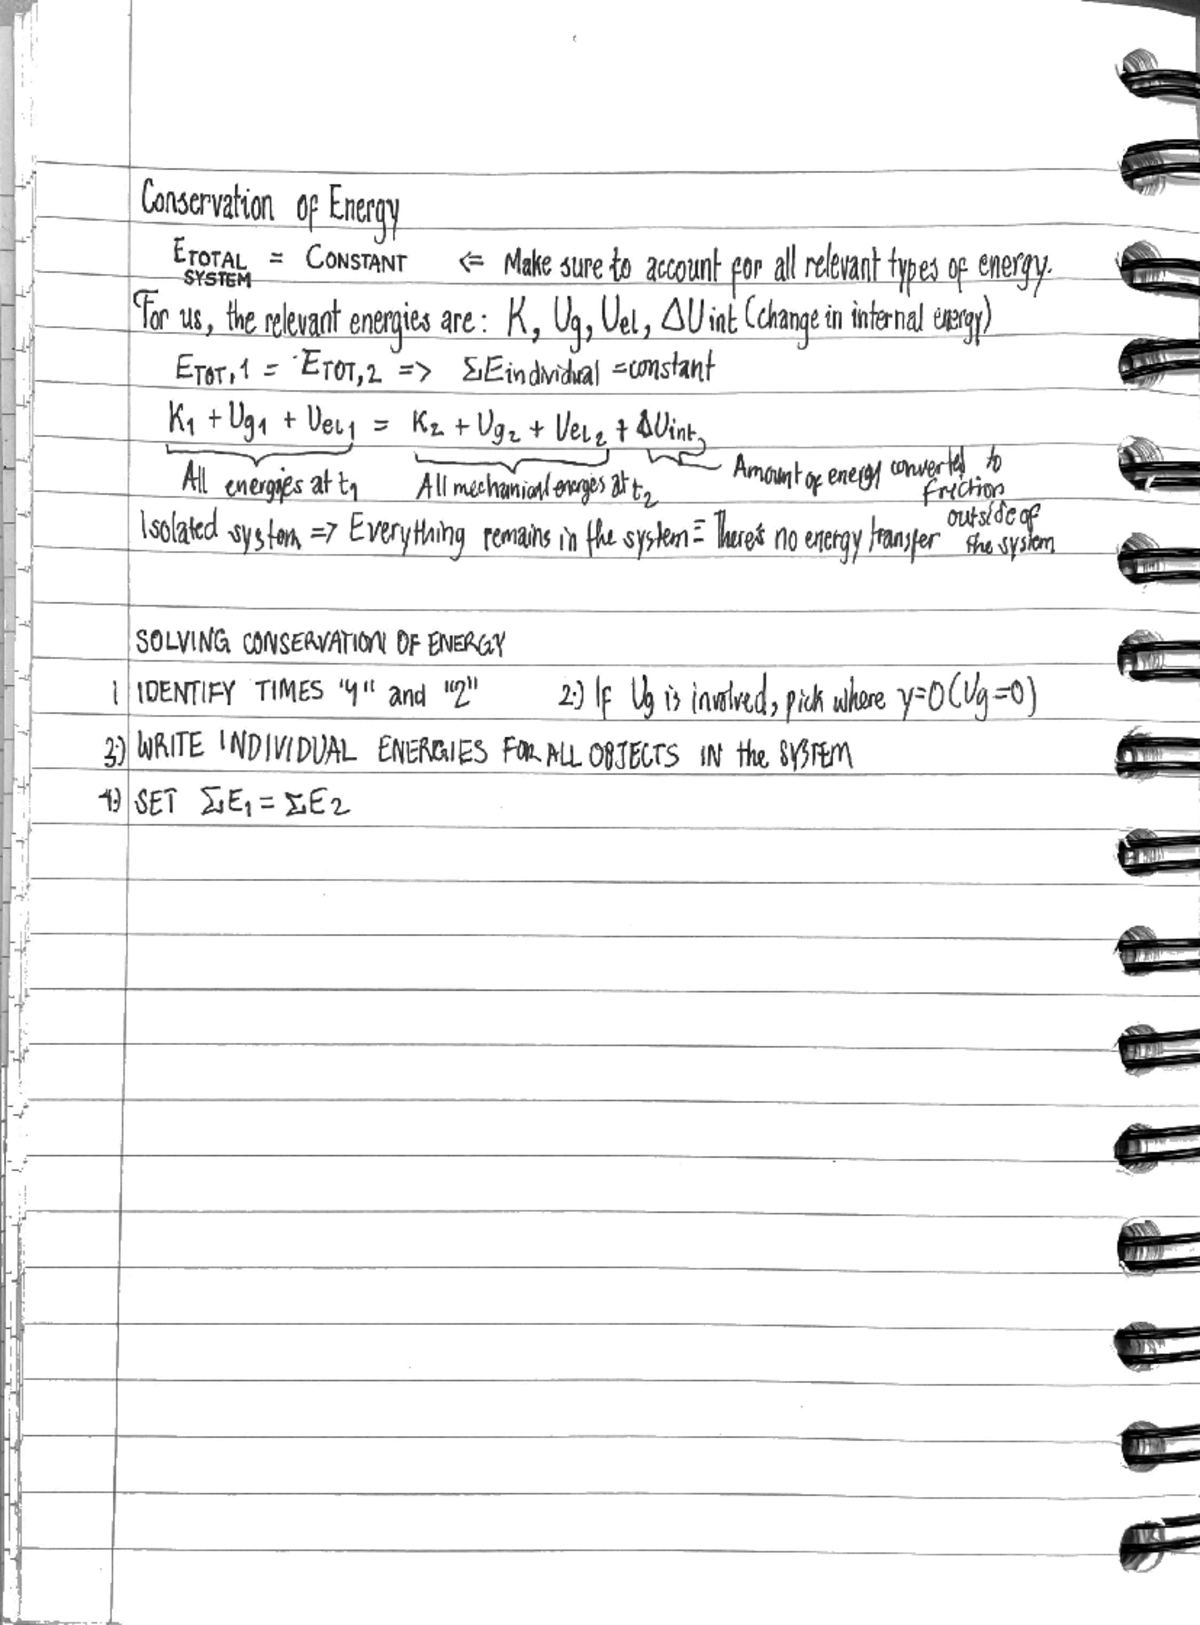 Conservation of Energy
ETOTAL SYSTEM = CONSTANT <= Make sure to account for all relevant types of energy.
For us, the relevant energies are: K, Ug, Uel, ΔUint (change in internal energy)
ETOT,1 = ETOT,2 => ΣEindividual = constant
K1 + Ug1 + Uel1 = K2 + Ug2 + Uel2 + ΔUint
All energies at t1 All mechanical energies at t2 Amount of energy converted to friction
Isolated system => Everything remains in the system = There's no energy transfer outside of the system
SOLVING CONSERVATION OF ENERGY
1 IDENTIFY TIMES "1" and "2" 2.) If Ug is involved, pick where y=0 (Ug=0)
3.) WRITE INDIVIDUAL ENERGIES FOR ALL OBJECTS IN the SYSTEM
4.) SET ΣE1 = ΣE2